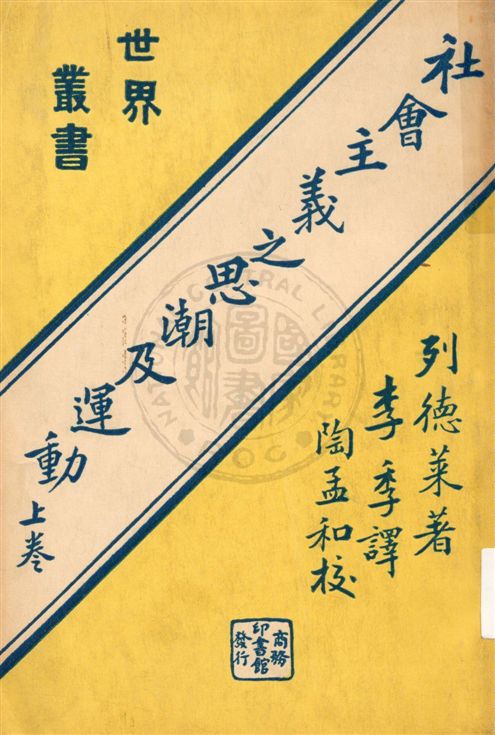 世界
叢書
社會主義之思潮及運動 上卷
列德萊著
李季譯
陶孟和校
商務
印書館
發行
NATIONAL CENTRAL LIBRARY
ROC